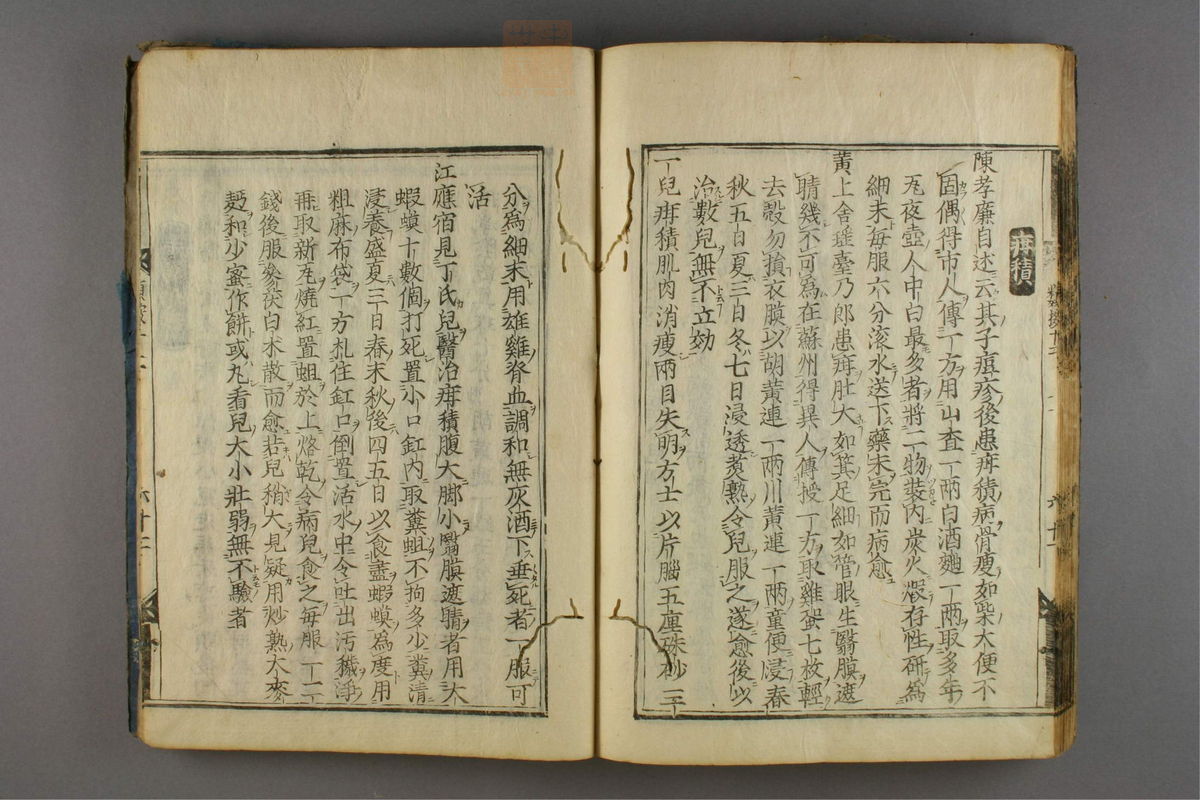 疳積
陳孝廉自述云其子痘疹後患疳積病骨瘦如柴大便不
固偶得市人傳一方用山査一兩白酒麯一兩取多年
瓦夜壺人中白最多者將二物裝內炭火煆存性研為
細末每服六分滾水送下藥未完而病愈
黃上舍瑤臺乃郎患疳肚大如箕足細如管眼生翳膜遮
睛幾不可為在蘇州得異人傳授一方取雞蛋七枚輕
去殼勿損衣膜以胡黃連一兩川黃連一兩童便浸春
秋五日夏三日冬七日浸透煑熟令兒服之遂愈後以
治數兒無不立効
丁兒疳積肌肉消瘦兩目失明方士以片腦五厘硃砂二
分為細末用雄雞脊血調和無灰酒下垂死者一服可
活
江應宿見丁氏兒醫治疳積腹大脚小翳膜遮睛者用大
蝦蟆十數個打死置小口缸內取糞蛆不拘多少糞清
浸養盛夏三日春末秋後四五日以食盡蝦蟆為度用
粗麻布袋一方札住缸口倒置活水中令吐出污穢淨
再取新瓦燒紅置蛆於上烙乾令病兒食之每服一二
錢後服參苓白朮散而愈若兒稍大見疑用炒熟大麥
麵和少蜜作餅或丸看兒大小壯弱無不驗者